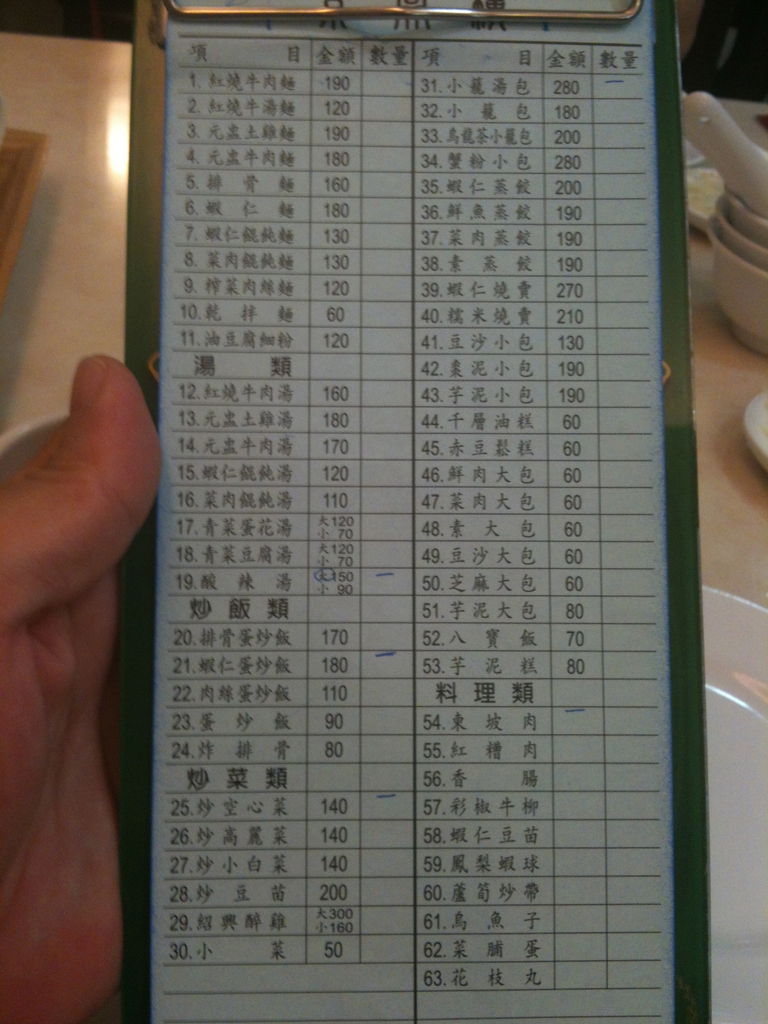 項 目 金額 數量
1. 紅燒牛肉麵 190
2. 紅燒牛湯麵 120
3. 元盅土雞麵 190
4. 元盅牛肉麵 180
5. 排骨麵 160
6. 蝦仁麵 180
7. 蝦仁餛飩麵 130
8. 菜肉餛飩麵 130
9. 榨菜肉絲麵 120
10. 乾拌麵 60
11. 油豆腐細粉 120
湯 類
12. 紅燒牛肉湯 160
13. 元盅土雞湯 180
14. 元盅牛肉湯 170
15. 蝦仁餛飩湯 120
16. 菜肉餛飩湯 110
17. 青菜蛋花湯 大120 小 70
18. 青菜豆腐湯 大120 小 70
19. 酸辣湯 大150 小 90
炒飯類
20. 排骨蛋炒飯 170
21. 蝦仁蛋炒飯 180
22. 肉絲蛋炒飯 110
23. 蛋炒飯 90
24. 炸排骨 80
炒菜類
25. 炒空心菜 140
26. 炒高麗菜 140
27. 炒小白菜 140
28. 炒豆苗 200
29. 紹興醉雞 大300 小160
30. 小菜 50
項 目 金額 數量
31. 小籠湯包 280
32. 小籠包 180
33. 烏龍茶小籠包 200
34. 蟹粉小包 280
35. 蝦仁蒸餃 200
36. 鮮魚蒸餃 190
37. 菜肉蒸餃 190
38. 素蒸餃 190
39. 蝦仁燒賣 270
40. 糯米燒賣 210
41. 豆沙小包 130
42. 棗泥小包 190
43. 芋泥小包 190
44. 千層油糕 60
45. 赤豆鬆糕 60
46. 鮮肉大包 60
47. 菜肉大包 60
48. 素大包 60
49. 豆沙大包 60
50. 芝麻大包 60
51. 芋泥大包 80
52. 八寶飯 70
53. 芋泥糕 80
料理類
54. 東坡肉
55. 紅糟肉
56. 香腸
57. 彩椒牛柳
58. 蝦仁豆苗
59. 鳳梨蝦球
60. 蘆筍炒帶
61. 烏魚子
62. 菜脯蛋
63. 花枝丸